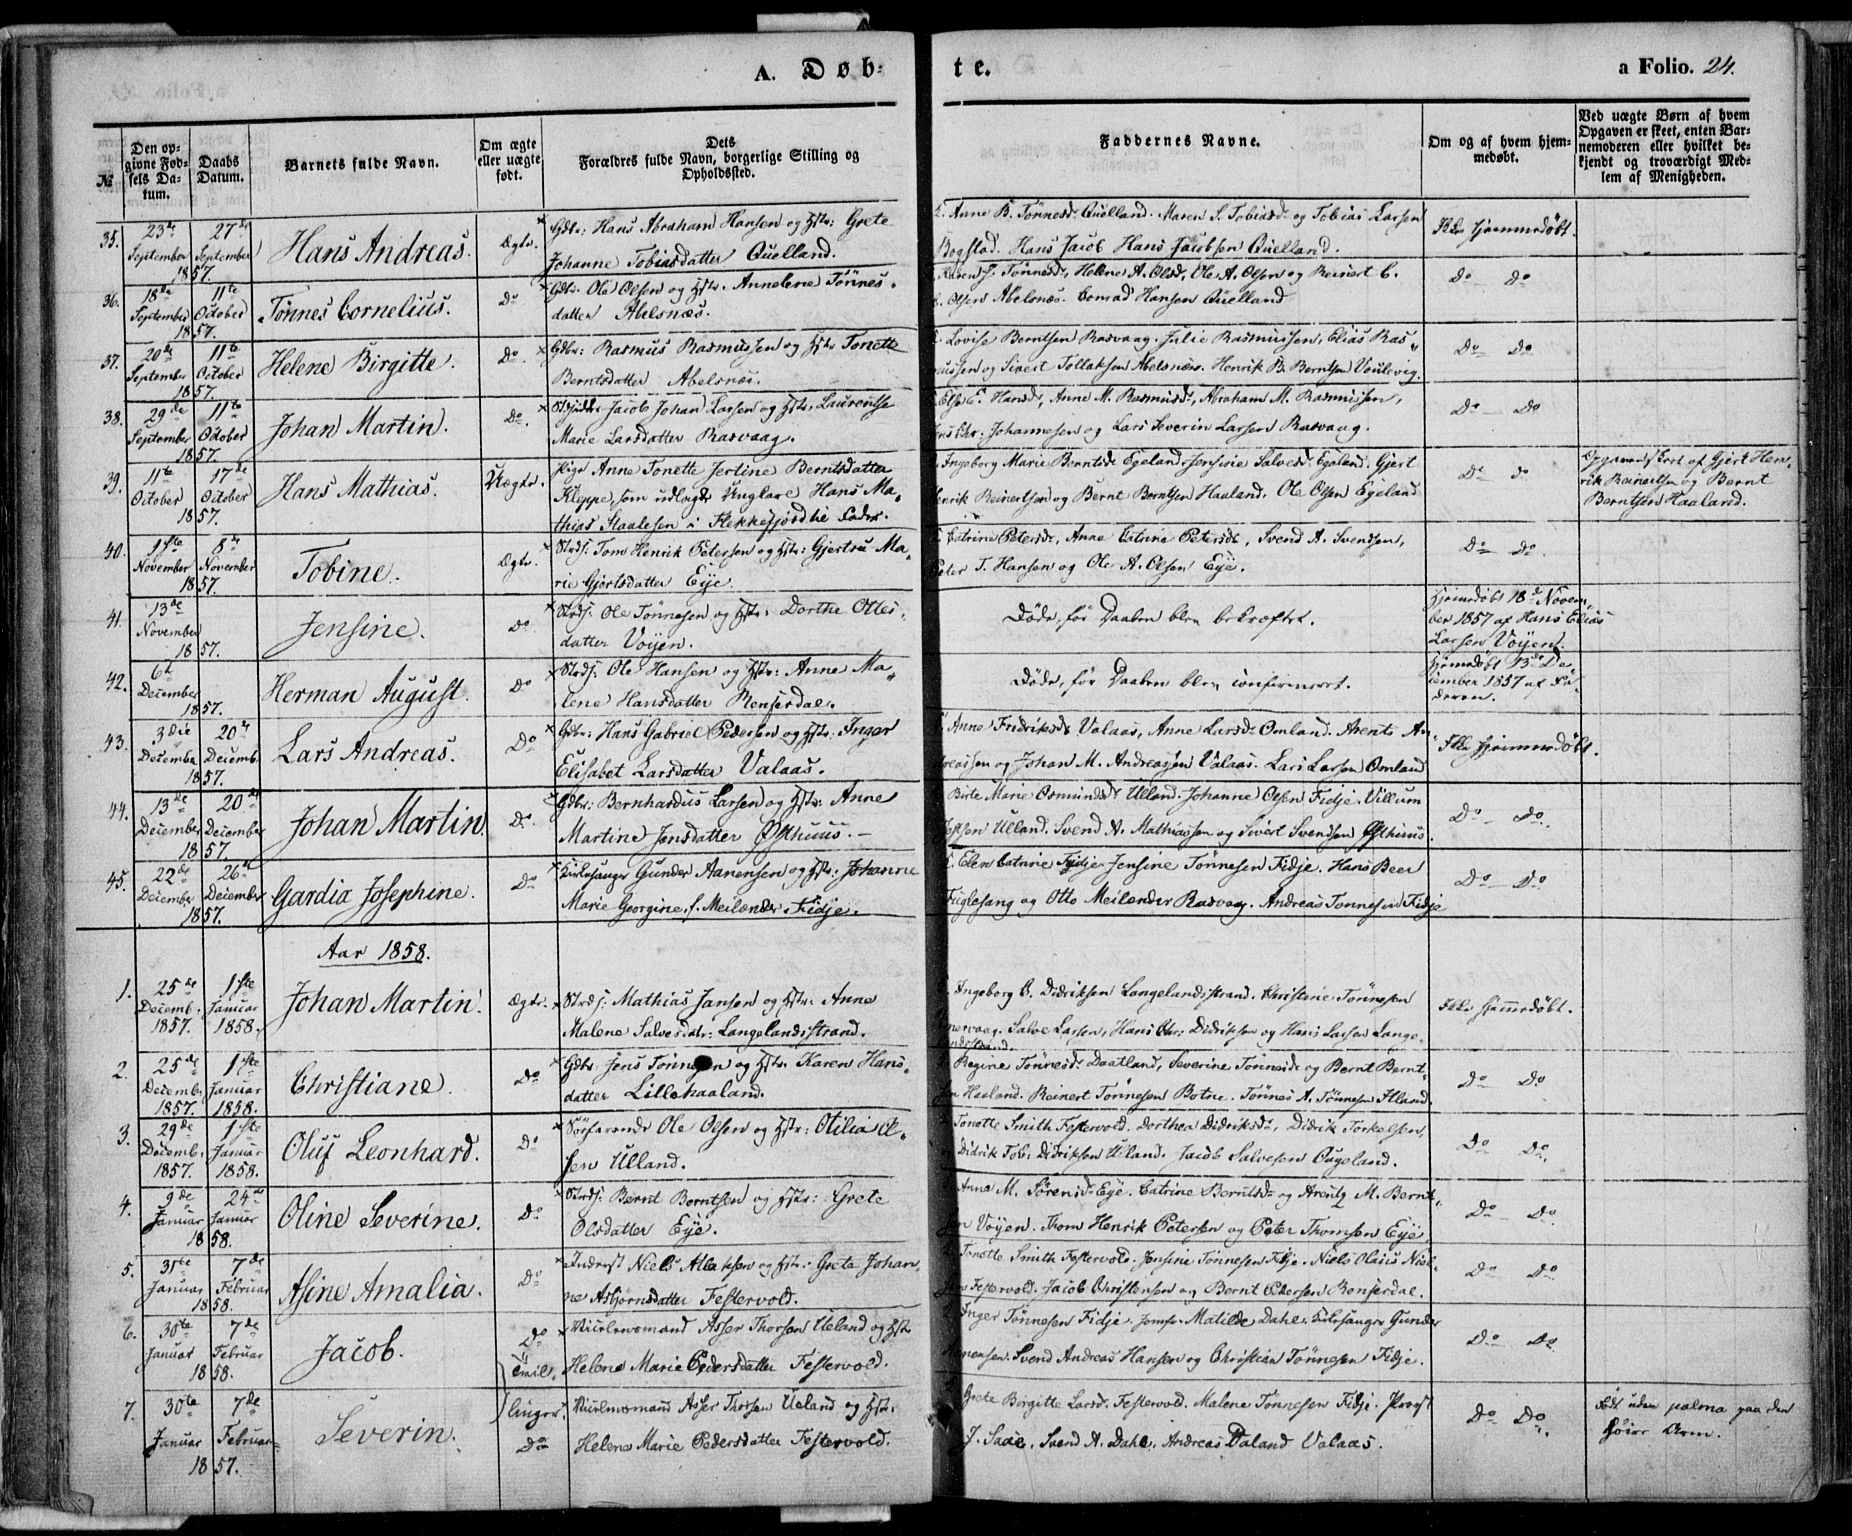 A. Døb-
te.
a Folio. 24.
№
Den opgivne Fødsels Datum.
Daabs Datum.
Barnets fulde Navn.
Om ægte eller uægte født.
Dets Forældres fulde Navn, borgerlige Stilling og Opholdssted.
Faddernes Navne.
Om og af hvem hjemmedøbt.
Ved uægte Børn af hvem Opgaven er skeet, enten Barnemoderen eller hvilket bekjendt og troværdigt Medlem af Menigheden.
35. 23de September 27de September 1857. Hans Andreas. Ægte.
Gdbr: Hans Abraham Hansen og Hstr: Grete
Johanne Tobiasdatter Qvelland.
Anne B. Tønnesd. Qvelland. Maren S. Tobiasd. og Tobias Larsen
Bogstad. Hans Jacob Hans Jacobsen Qvelland.
Ikke hjemmedøbt.
36. 18de September 11te October 1857. Tønnes Cornelius. Do
Gdbr: Ole Olsen og Hstr: Annelene Tønnes-
datter Abelsnæs.
Karen S. Tønnesd., Helene A. Olsd., Ole A. Olsen og Reinert C.
Olsen Abelsnæs. Conrad Hansen Qvelland
Do Do
37. 20de September 11te October 1857. Helene Birgitte. Do.
Gdbr: Rasmus Rasmussen og Hstr: Tonette
Berntsdatter Abelsnæs.
Lovise Berntsen Rasvaag. Julie Rasmussen, Elias Ras-
mussen og Sivert Tollaksen Abelsnæs. Henrik B. Berntsen Voulevig.
Do Do
38. 29de September 11te October 1857. Johan Martin. Do.
Jacob Johan Larsen og Hstr: Laurentse
Marie Larsdatter Rasvaag.
Else E. Hansd., Anne M. Rasmusd., Abraham M. Rasmussen,
Jens Chr: Johannesen og Lars Severin Larsen Rasvaag.
Do Do
39. 11te October 17de October 1857. Hans Mathias. Uægte.
Pige Anne Tonette Jertine Berntsdatter
Kleppe, som udlagde Ungkarl Hans Ma-
thias Staalesen i Flekkefjord til Fader.
Ingeborg Marie Berntsd. Egeland. Salvesd. Egeland. Gjert
Henrik Reinertsen og Bernt Berntsen Haaland. Ole Olsen Egeland
Do do
Opgaven skeet af Gjert Hen-
rik Reinertsen og Bernt
Berntsen Haaland.
40. 1ste November 8de November 1857. Tobine. Ægte.
Strds: Tom Henrik Petersen og Hstr: Gjertru Ma-
rie Gjertsdatter Eye.
Catrine Petersd., Anne Catrine Petersdt., Svend A. Svendsen,
Peter T. Hansen og Ole A. Olsen Eye.
Do Do.
41. 13de November 1857. Jensine. Do
Strds: Ole Tønnesen og Hstr: Dorthe Ottes-
datter Voyen.
Døde, før Daaben blev bekræftet.
Hjemdøbt 18de Novem-
ber 1857 af Hans Elias
Larsen Voyen.
42. 6te December 1857. Herman August. Do
Strds: Ole Hansen og Hstr: Anne Ma-
lene Hansdatter Renserdal.
Døde, før Daaben blev confirmeret.
Hjemdøbt 13de De-
cember 1857 af Fa-
deren.
43. 3die December 20de Decemb. 1857. Lars Andreas. Do
Gdbr: Hans Gabriel Pedersen og Hstr: Inger
Elisabet Larsdatter Valaas.
Anne Fredriksd. Valaas, Anne Larsd. Omland. Arent An-
dreassen og Johan M. Andreassen Valaas. Lars Larsen Omland
Ikke hjemmedøbt.
44. 13de December 20de December 1857. Johan Martin. Do.
Gdbr: Bernhardus Larsen og Hstr: Anne
Martine Jensdatter Østhuus.
Birte Marie Osmundsd. Ulland. Johanne Olsen Fidje. Villum
Ulland. Svend A. Mathiassen og Sivert Svendsen Østhuus.
Do Do.
45. 22de December 26de December 1857. Gardia Josephine. Do
Kirkesanger Gunder Aanensen og Hstr: Johanne
Marie Georgine f. Meilænder. Fidje.
Elen Catrine Fidje. Jensine Tønnesen Fidje. Hans Beer
Fuglesang og Otto Meilender Rasvaag. Andreas Tønnesen Fidje
Do Do.
Aar 1858.
1. 25de Decemb. 1857. 1ste Januar 1858. Johan Martin. Ægte.
Strds: Mathias Jansen og Hstr: Anne
Malene Salvesdtr: Langelandsstrand.
Ingeborg B. Didriksen Langelandsstrand. Christine Tønnesen
Salve Larsen, Hans Chr: Didriksen og Hans Larsen Lange-
landsstrand.
Ikke hjemmedøbt.
2. 25de Decemb. 1857. 1ste Januar 1858. Christiane. Do
Gdbr: Jens Tønnesen og Hstr: Karen Hans-
datter Lillehaaland.
Regine Tønnesd. Daatland, Severine Tønnesd. og Bernt Bernt-
sen Haaland. Reinert Tønnesen Botne. Tønnes A. Tønnesen Illand.
Do Do
3. 29de Decemb. 1857. 1ste Januar 1858. Oluf Leonhard. Do
Søfarende Ole Olsen og Hstr: Otilia Ol-
sen Ulland.
Tonette Smith Festervold. Dorthea Didriksdr., Didrik Torkelsen,
Didrik Tob: Didriksen Ulland. Jacob Salvesen Øugeland.
Do Do.
4. 9de Januar 24de Januar 1858. Oline Severine. Do
Strds: Bernt Berntsen og Hstr: Grete
Olsdatter Eye.
Anne M. Sørensd. Eye. Catrine Berntsd. og Arentz M. Bernt-
sen Voyen. Thom Henrik Petersen og Peter Thomsen Eye.
Do Do.
5. 31te Januar 7de Februar 1858. Asine Amalia. Do
Inderst Niels Atlaksen og Hstr: Grete Johan-
ne Asbjørnsdatter Festervold.
Tonette Smith Festervold. Jensine Tønnesen Fidje. Niels Olaus Niel-
sen Festervold. Jacob Christensen og Bernt Pedersen Renserdal.
Do Do.
6. 30te Januar 7de Februar 1858. Jacob. Do
Asser Thorsen Ueland og Hstr
Helene Marie Pedersdatter Festervold.
Inger Tønnesen Fidje. Jomfr. Matilde Dahl. Kirkesanger Gunder
Aanensen. Svend Andreas Hansen og Christian Tønnesen Fidje.
Do Do
Tvil-
linger.
7. 30te Januar 7de Februar 1857. Severin. Do
Asser Thorsen Ueland og Hstr:
Helene Marie Pedersdatter Festervold.
Grete Birgitte Larsd. Festervold. Malene Tønnesen Fidje. Provst
J. Saae. Svend A. Dahl. Andreas Daland Valaas.
Do Do.
Født uden palma paa den
høire Arm.